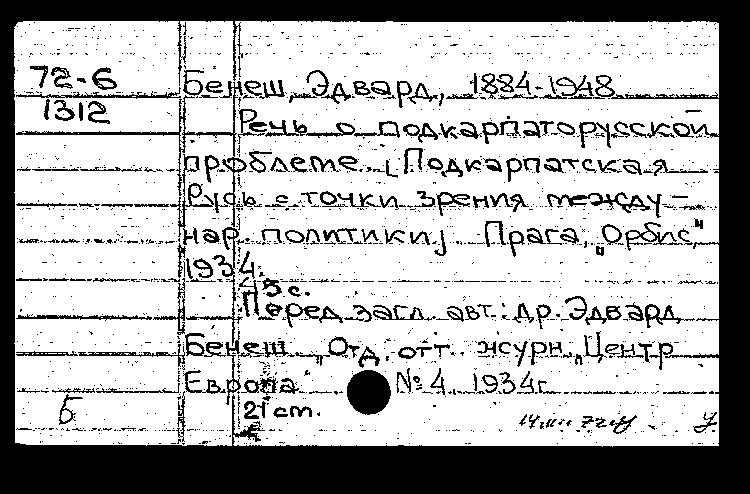 72-6
Бенеш, Эдвард, 1884-1948
1312
Речь о подкарпаторусской
проблеме. [Подкарпатская
Русь с точки зрения между-
нар. политики] Прага, „Орбис“,
1934.
45 с.
Перед загл. авт.: др. Эдвард
Бенеш „Отд. отт. журн. „Центр
Европа“ № 4, 1934г
5
21 cm.